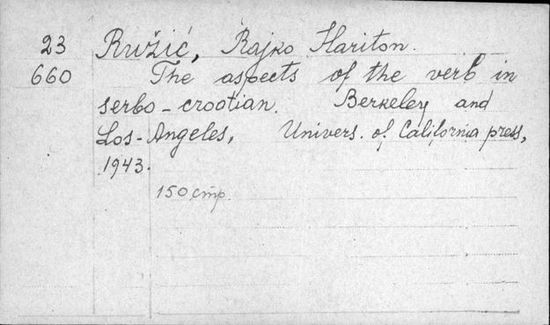 23 Ružić, Rajko Hariton.
660 The aspects of the verb in
serbo-croatian. Berkeley and
Los-Angeles, Univers. of California press,
1943.
150 стр.